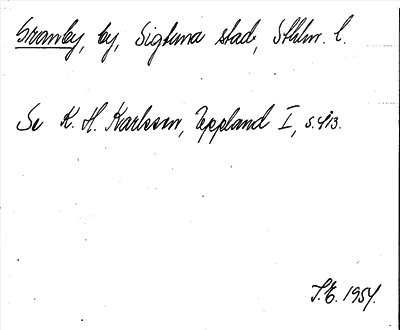 Granby, by, Sigtuna stad, Sthlm. l.
Se K. H. Karlsson, Uppland I, s. 413.
T.E. 1954.